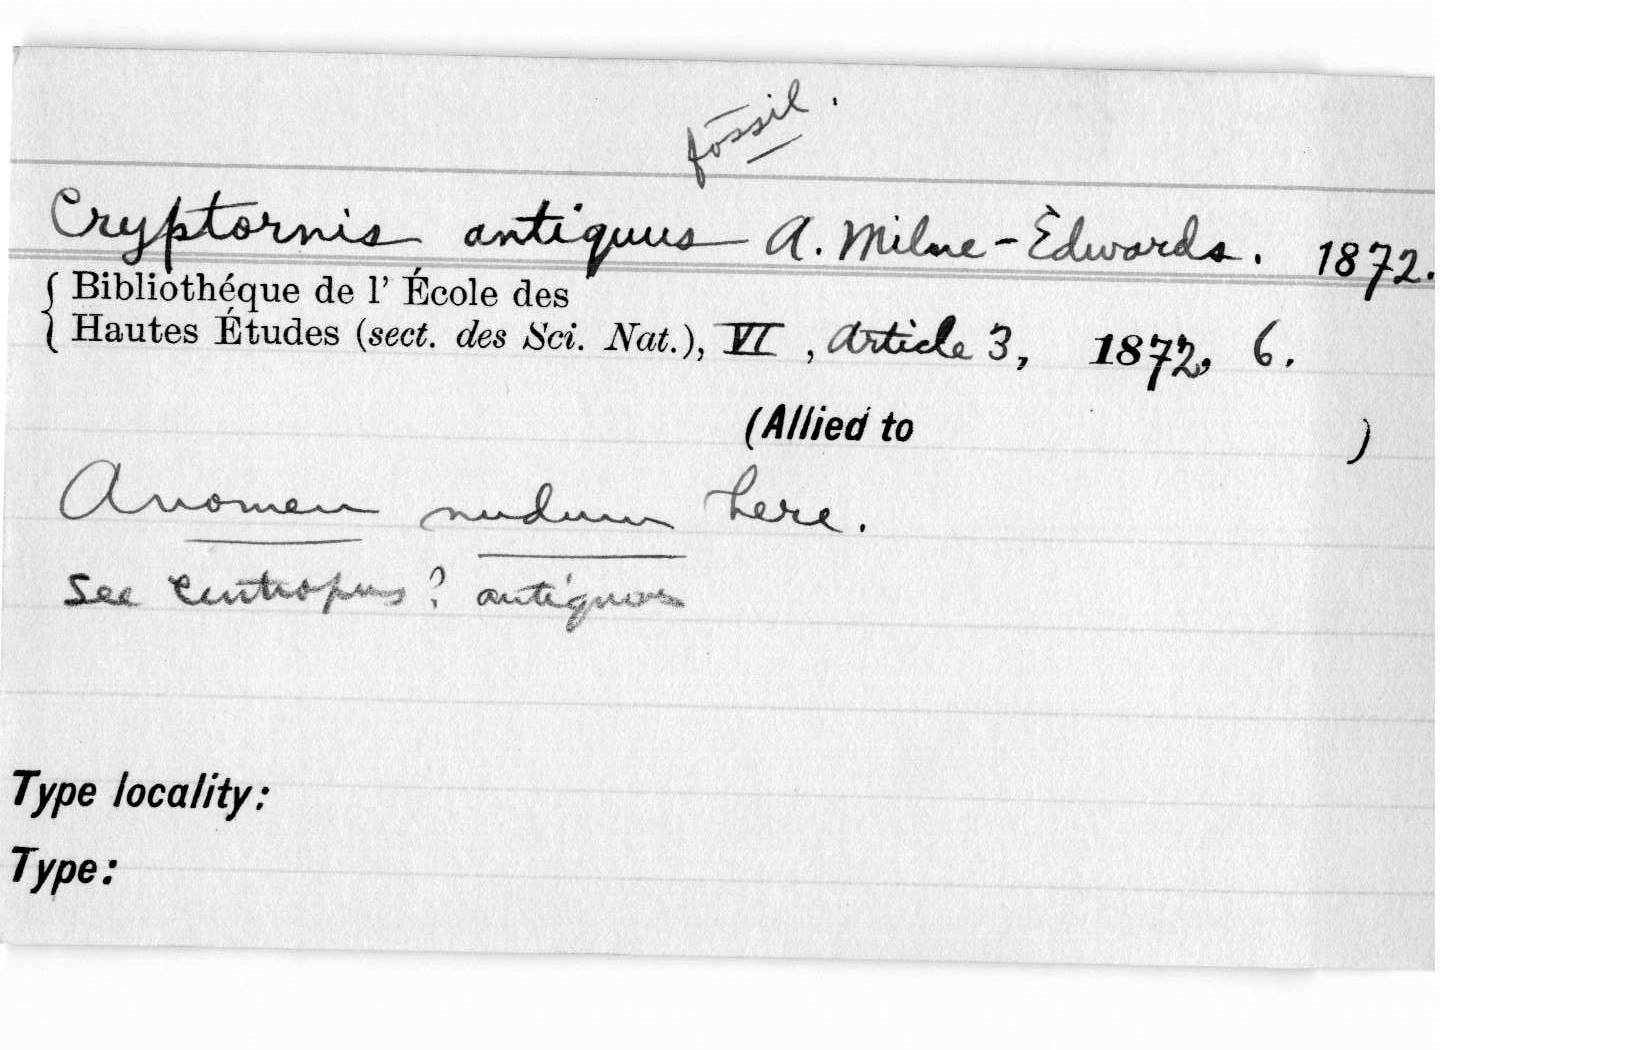 fossil.
Cryptornis antiquus A. Milne-Èdwards. 1872.
Bibliothéque de l' École des
Hautes Études (sect. des Sci. Nat.), VI, Article 3, 1872, 6.
(Allied to )
A nomen nudum here.
See Centropus? antiquus
Type locality:
Type: